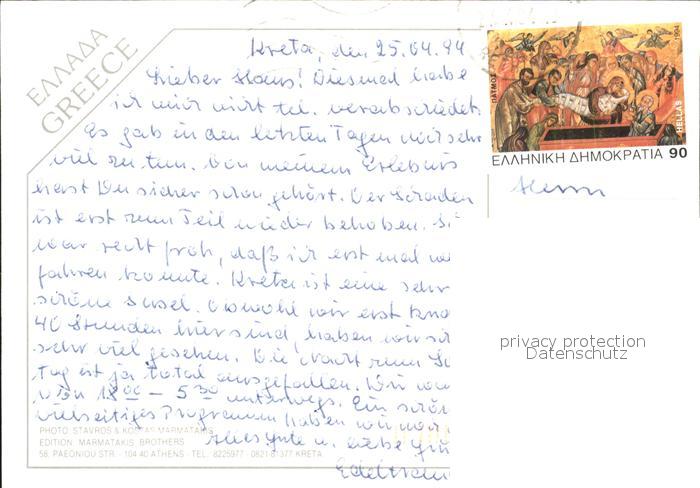 ΕΛΛΑΔΑ
GREECE
Kreta, den 25.04.94
Lieber Hans! Diesmal habe
ich mich nicht tel. verabschiedet.
Es gab in den letzten Tagen noch sehr
viel zu tun. Von meinem Erlebnis
hast Du sicher schon gehört. Der Schaden
ist erst zum Teil wieder behoben.
war recht froh, daß ich erst mal
fahren konnte. Kreta ist eine sehr
schöne Insel. Obwohl wir erst
40 Stunden hier sind, haben wir
sehr viel gesehen. Die Nacht zum
Tag ist ja total ausgefallen. Wir
von 18 00 – 5 30 unterwegs. Ein
vielseitiges Programm haben wir
Alles Gute u. liebe
PHOTO STAVROS & KOSTAS MARMATAKIS
EDITION MARMATAKIS BROTHERS
58, PAEONIOU STR. - 104 40 ATHENS - TEL.: 8225977 - 0821-81377 KRETA
ΠΑΤΜΟΣ
1994
HELLAS
ΕΛΛΗΝΙΚΗ ΔΗΜΟΚΡΑΤΙΑ 90
Herrn
privacy protection
Datenschutz